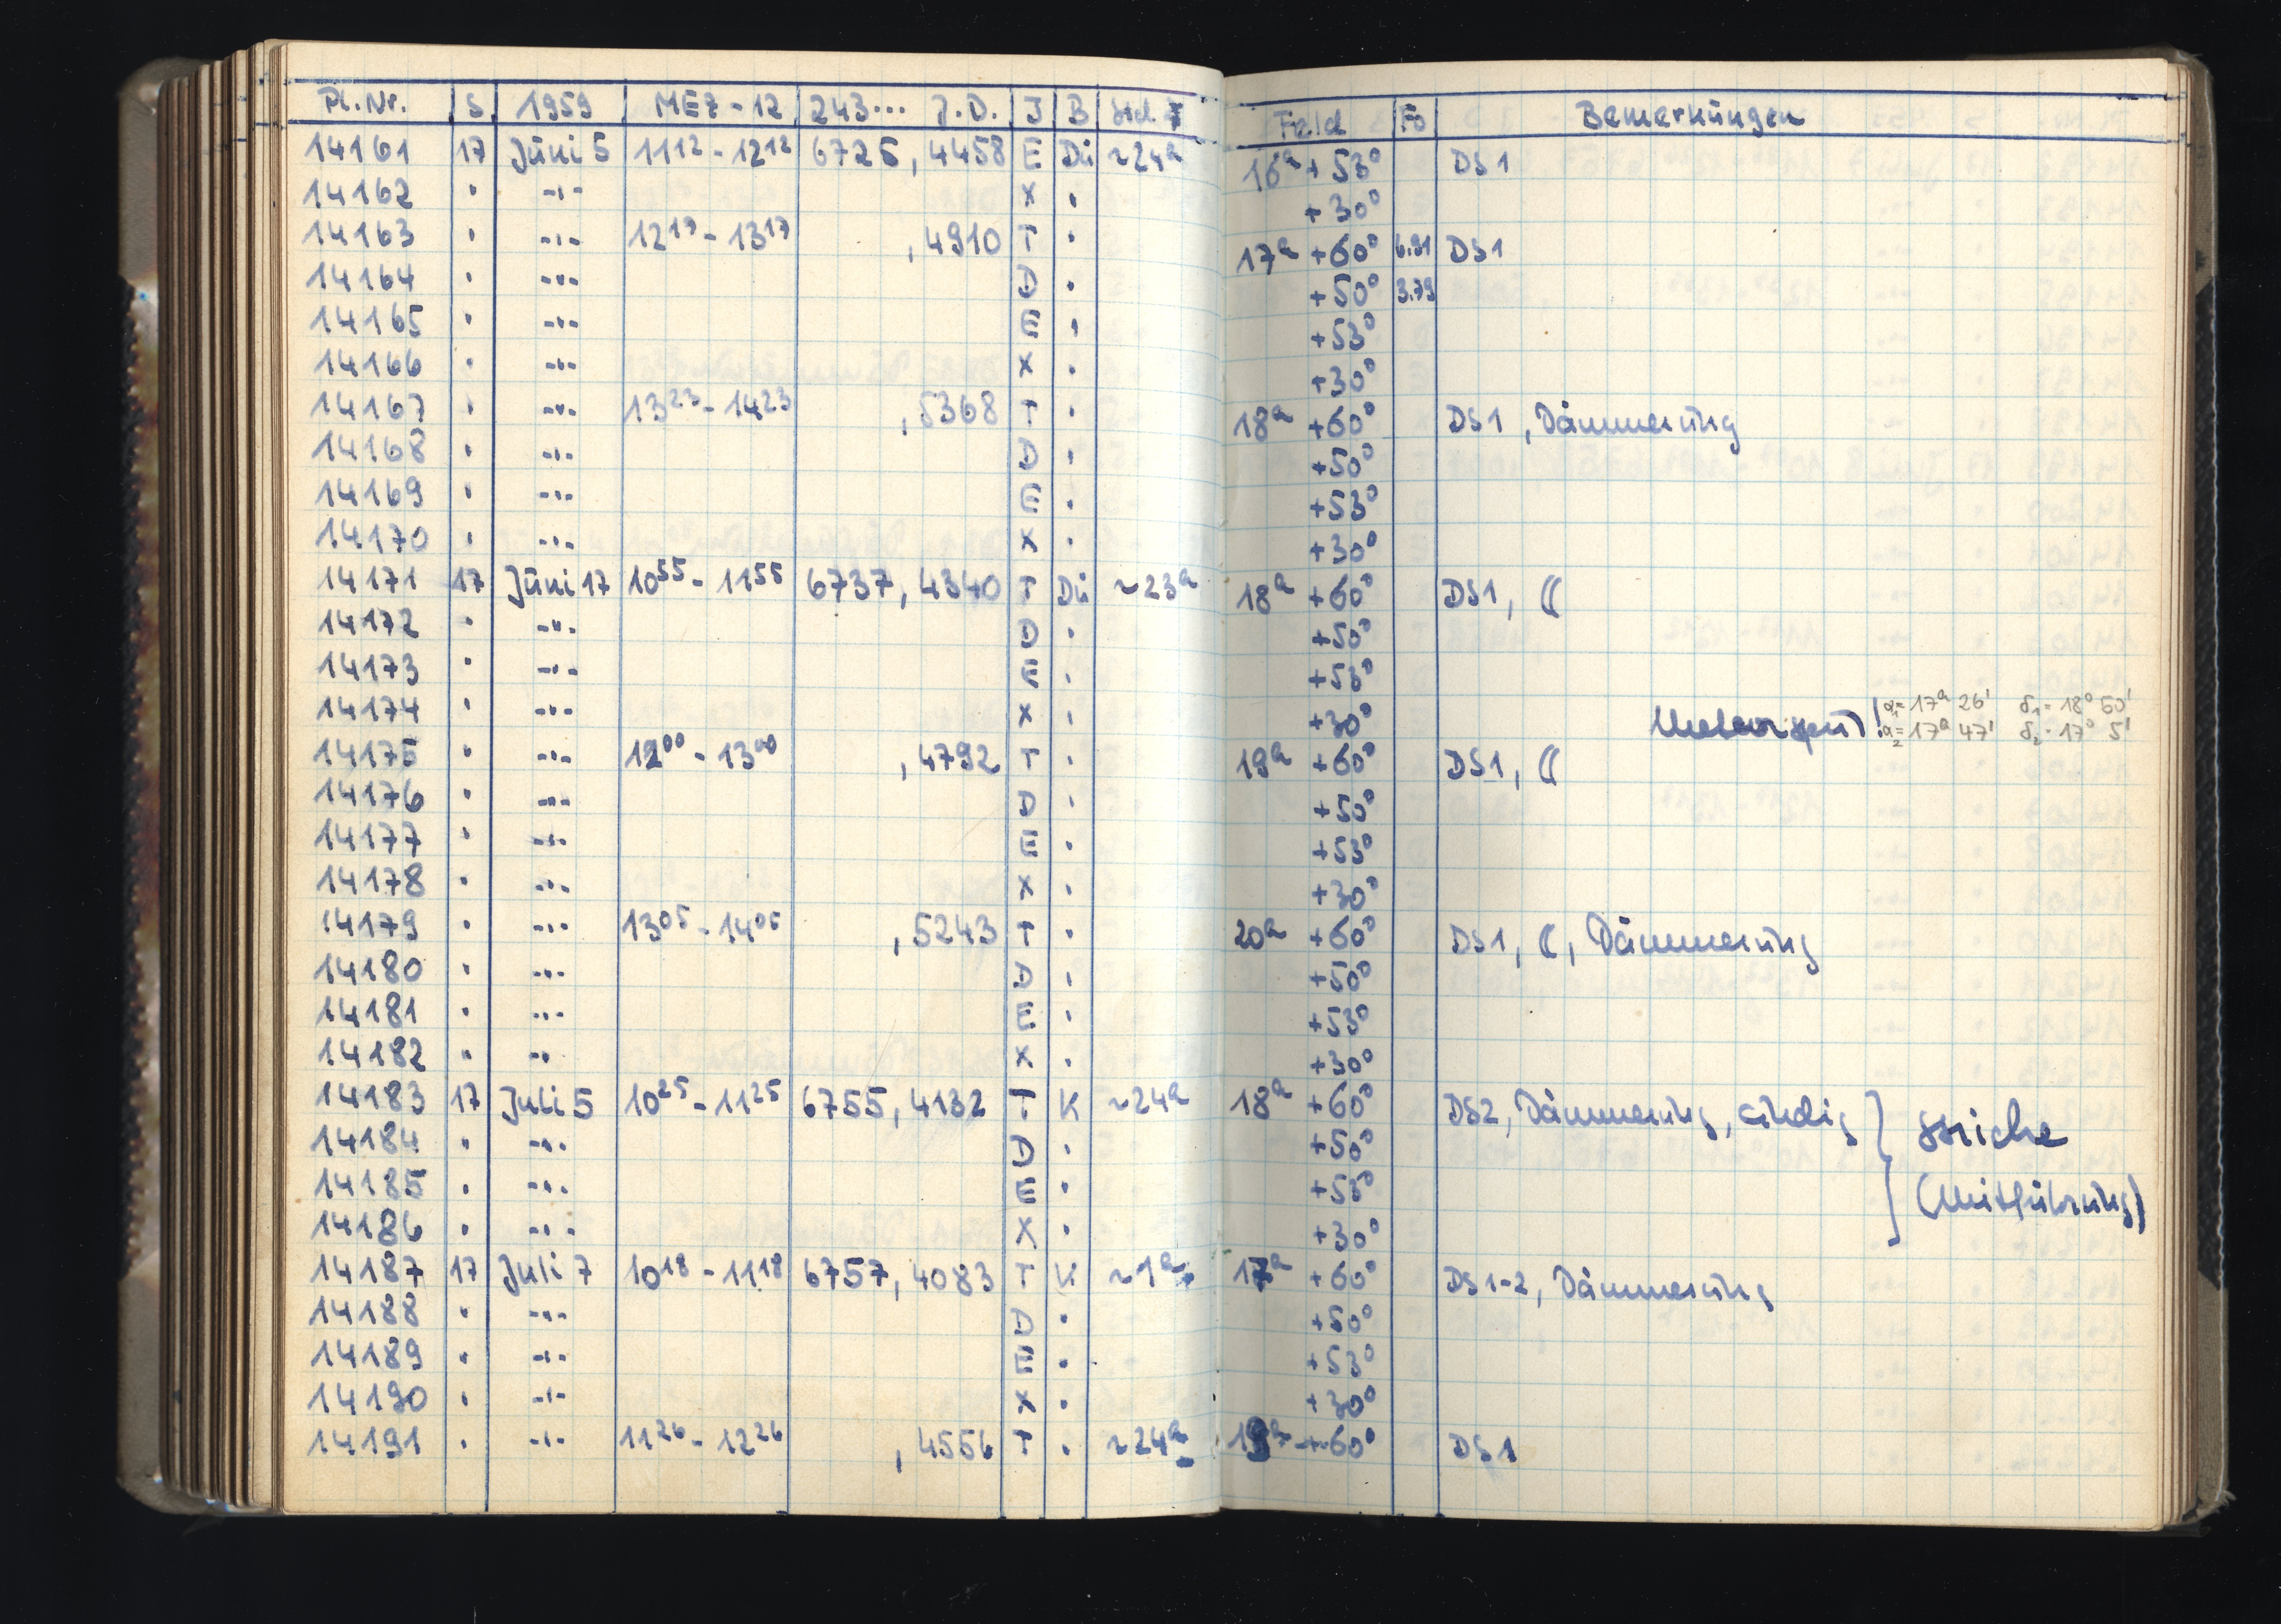 Pl.Nr. S 1959 MEZ-12 243... J.D. J B Std. Feld Fo Bemerkungen
14161 17 Juni 5 11¹²-12¹² 6725,4458 E Dü ~24ᵃ 16ᵃ +53° DS1
14162 " -"- X " +30°
14163 " -"- 12¹⁷-13¹⁷ ,4910 T " 17ᵃ +60° 6.91 DS1
14164 " -"- D " +50° 3.79
14165 " -"- E " +53°
14166 " -"- X " +30°
14167 " -"- 13²³-14²³ ,5368 T " 18ᵃ +60° DS1, Dämmerung
14168 " -"- D " +50°
14169 " -"- E " +53°
14170 " -"- X " +30°
14171 17 Juni 17 10⁵⁵-11⁵⁵ 6737,4340 T Dü ~23ᵃ 18ᵃ +60° DS1, ☾
14172 " -"- D " +50°
14173 " -"- E " +53°
14174 " -"- X " +30° Meteorspur! α₁=17ᵃ 26' δ₁=18° 50'
α₂=17ᵃ 47' δ₂=17° 5'
14175 " -"- 12⁰⁰-13⁰⁰ ,4792 T " 19ᵃ +60° DS1, ☾
14176 " -"- D " +50°
14177 " -"- E " +53°
14178 " -"- X " +30°
14179 " -"- 13⁰⁵-14⁰⁵ ,5243 T " 20ᵃ +60° DS1, ☾, Dämmerung
14180 " -"- D " +50°
14181 " -"- E " +53°
14182 " -"- X " +30°
14183 17 Juli 5 10²⁵-11²⁵ 6755,4132 T K ~24ᵃ 18ᵃ +60° DS2, Dämmerung, } Striche
14184 " -"- D " +50°
14185 " -"- E " +53° (Mitführung)
14186 " -"- X " +30°
14187 17 Juli 7 10¹⁸-11¹⁸ 6757,4083 T K ~1ᵃ 17ᵃ +60° DS1-2, Dämmerung
14188 " -"- D " +50°
14189 " -"- E " +53°
14190 " -"- X " +30°
14191 " -"- 11²⁶-12²⁶ ,4556 T " ~24ᵃ 19ᵃ +60° DS1